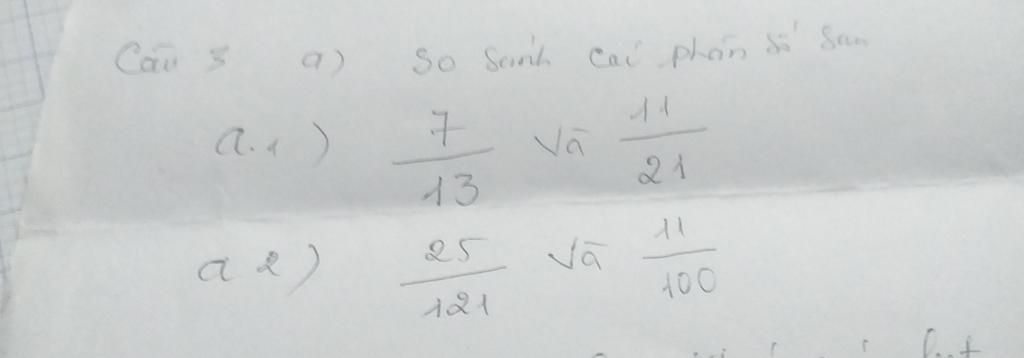 Câu 3 a) So sánh cai phân số sau
a.1) 7/13 và 11/21
a 2) 25/121 và 11/100